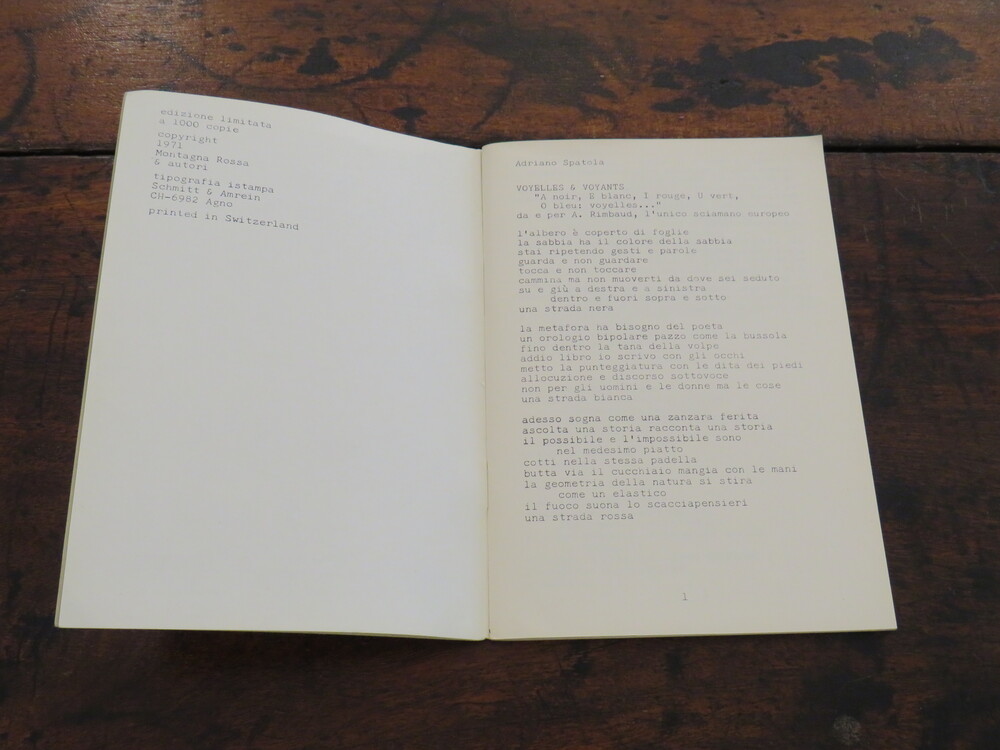 edizione limitata
a 1000 copie
copyright
1971
Montagna Rossa
& autori
tipografia istampa
Schmitt & Amrein
CH-6982 Agno
printed in Switzerland
Adriano Spatola
VOYELLES & VOYANTS
"A noir, E blanc, I rouge, U vert,
O bleu: voyelles..."
da e per A. Rimbaud, l'unico sciamano europeo
l'albero è coperto di foglie
la sabbia ha il colore della sabbia
stai ripetendo gesti e parole
guarda e non guardare
tocca e non toccare
cammina ma non muoverti da dove sei seduto
su e giù a destra e a sinistra
dentro e fuori sopra e sotto
una strada nera
la metafora ha bisogno del poeta
un orologio bipolare pazzo come la bussola
fino dentro la tana della volpe
addio libro io scrivo con gli occhi
metto la punteggiatura con le dita dei piedi
allocuzione e discorso sottovoce
non per gli uomini e le donne ma le cose
una strada bianca
adesso sogna come una zanzara ferita
ascolta una storia racconta una storia
il possibile e l'impossibile sono
nel medesimo piatto
cotti nella stessa padella
butta via il cucchiaio mangia con le mani
la geometria della natura si stira
come un elastico
il fuoco suona lo scacciapensieri
una strada rossa
1